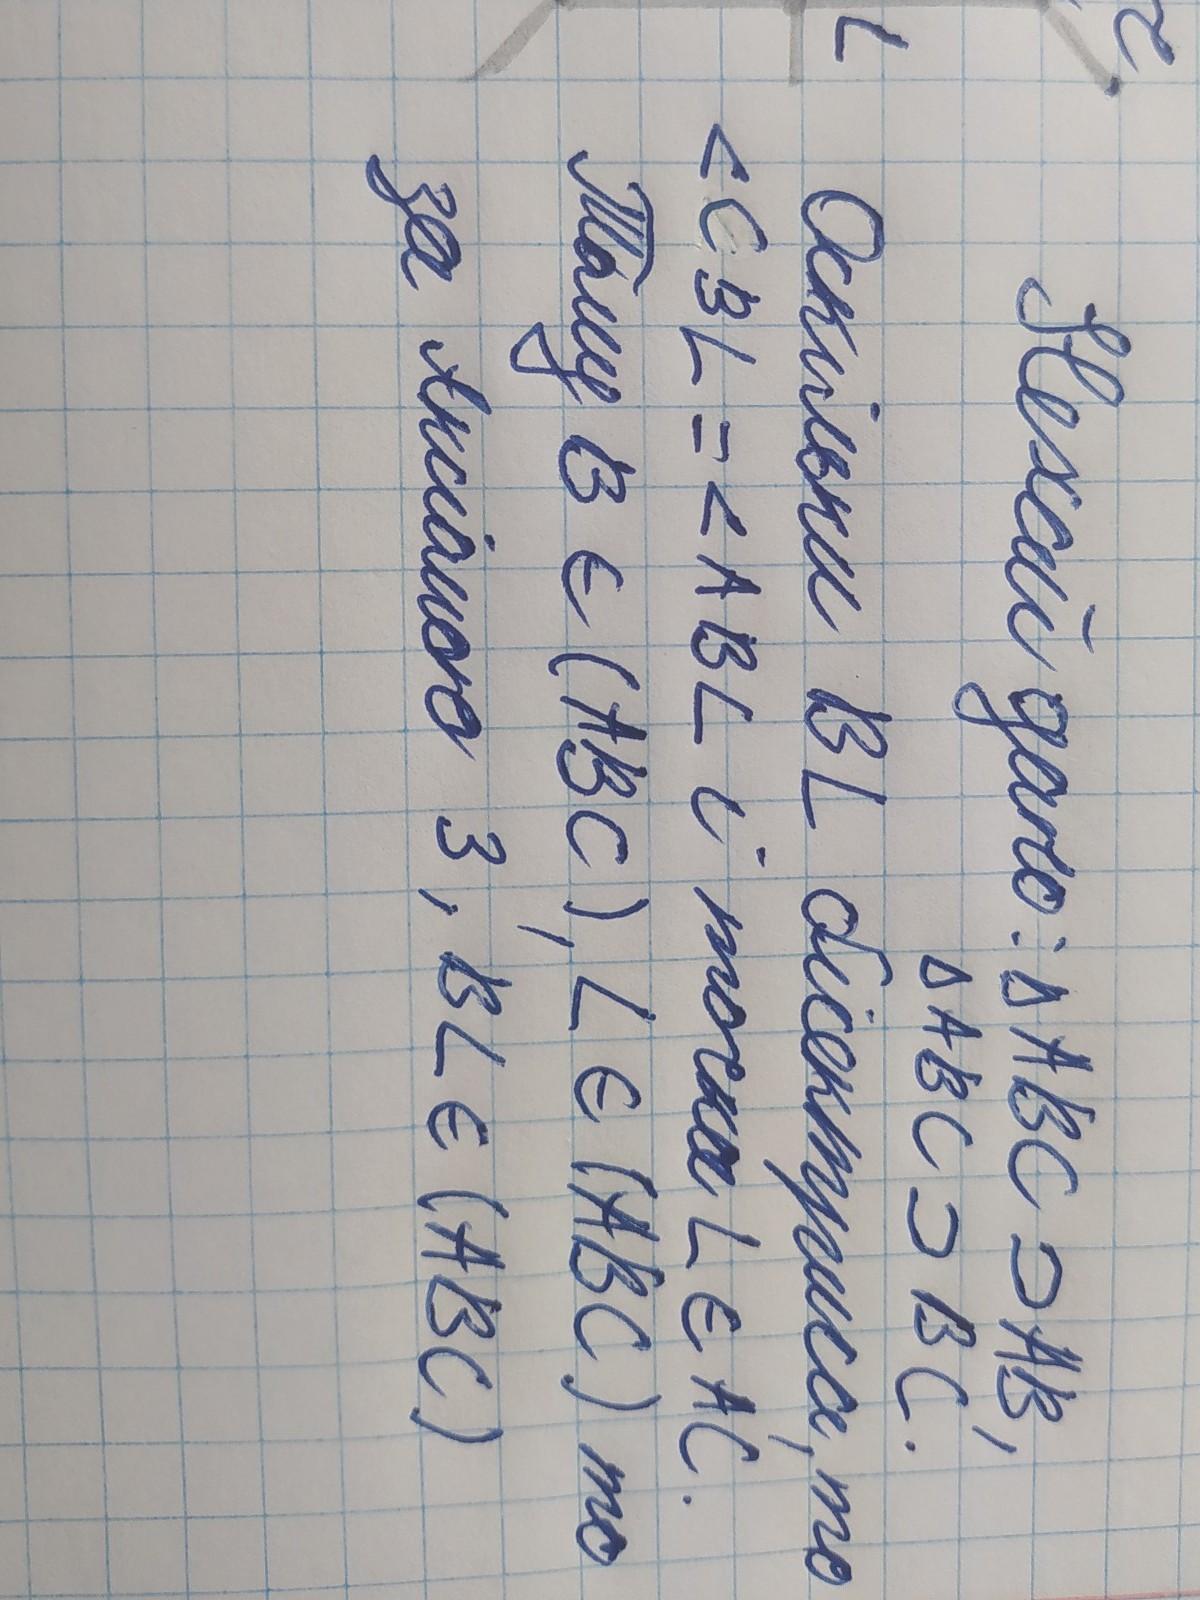 г.
Нехай дано: ΔABC ⊃ AB,
ΔABC ⊃ BC.
L
Оскільки BL бісектриса, то
<CBL = <ABL і точка L є AC.
Тому B є (ABC), L є (ABC) то
за Аксіомою 3, BL є (ABC)